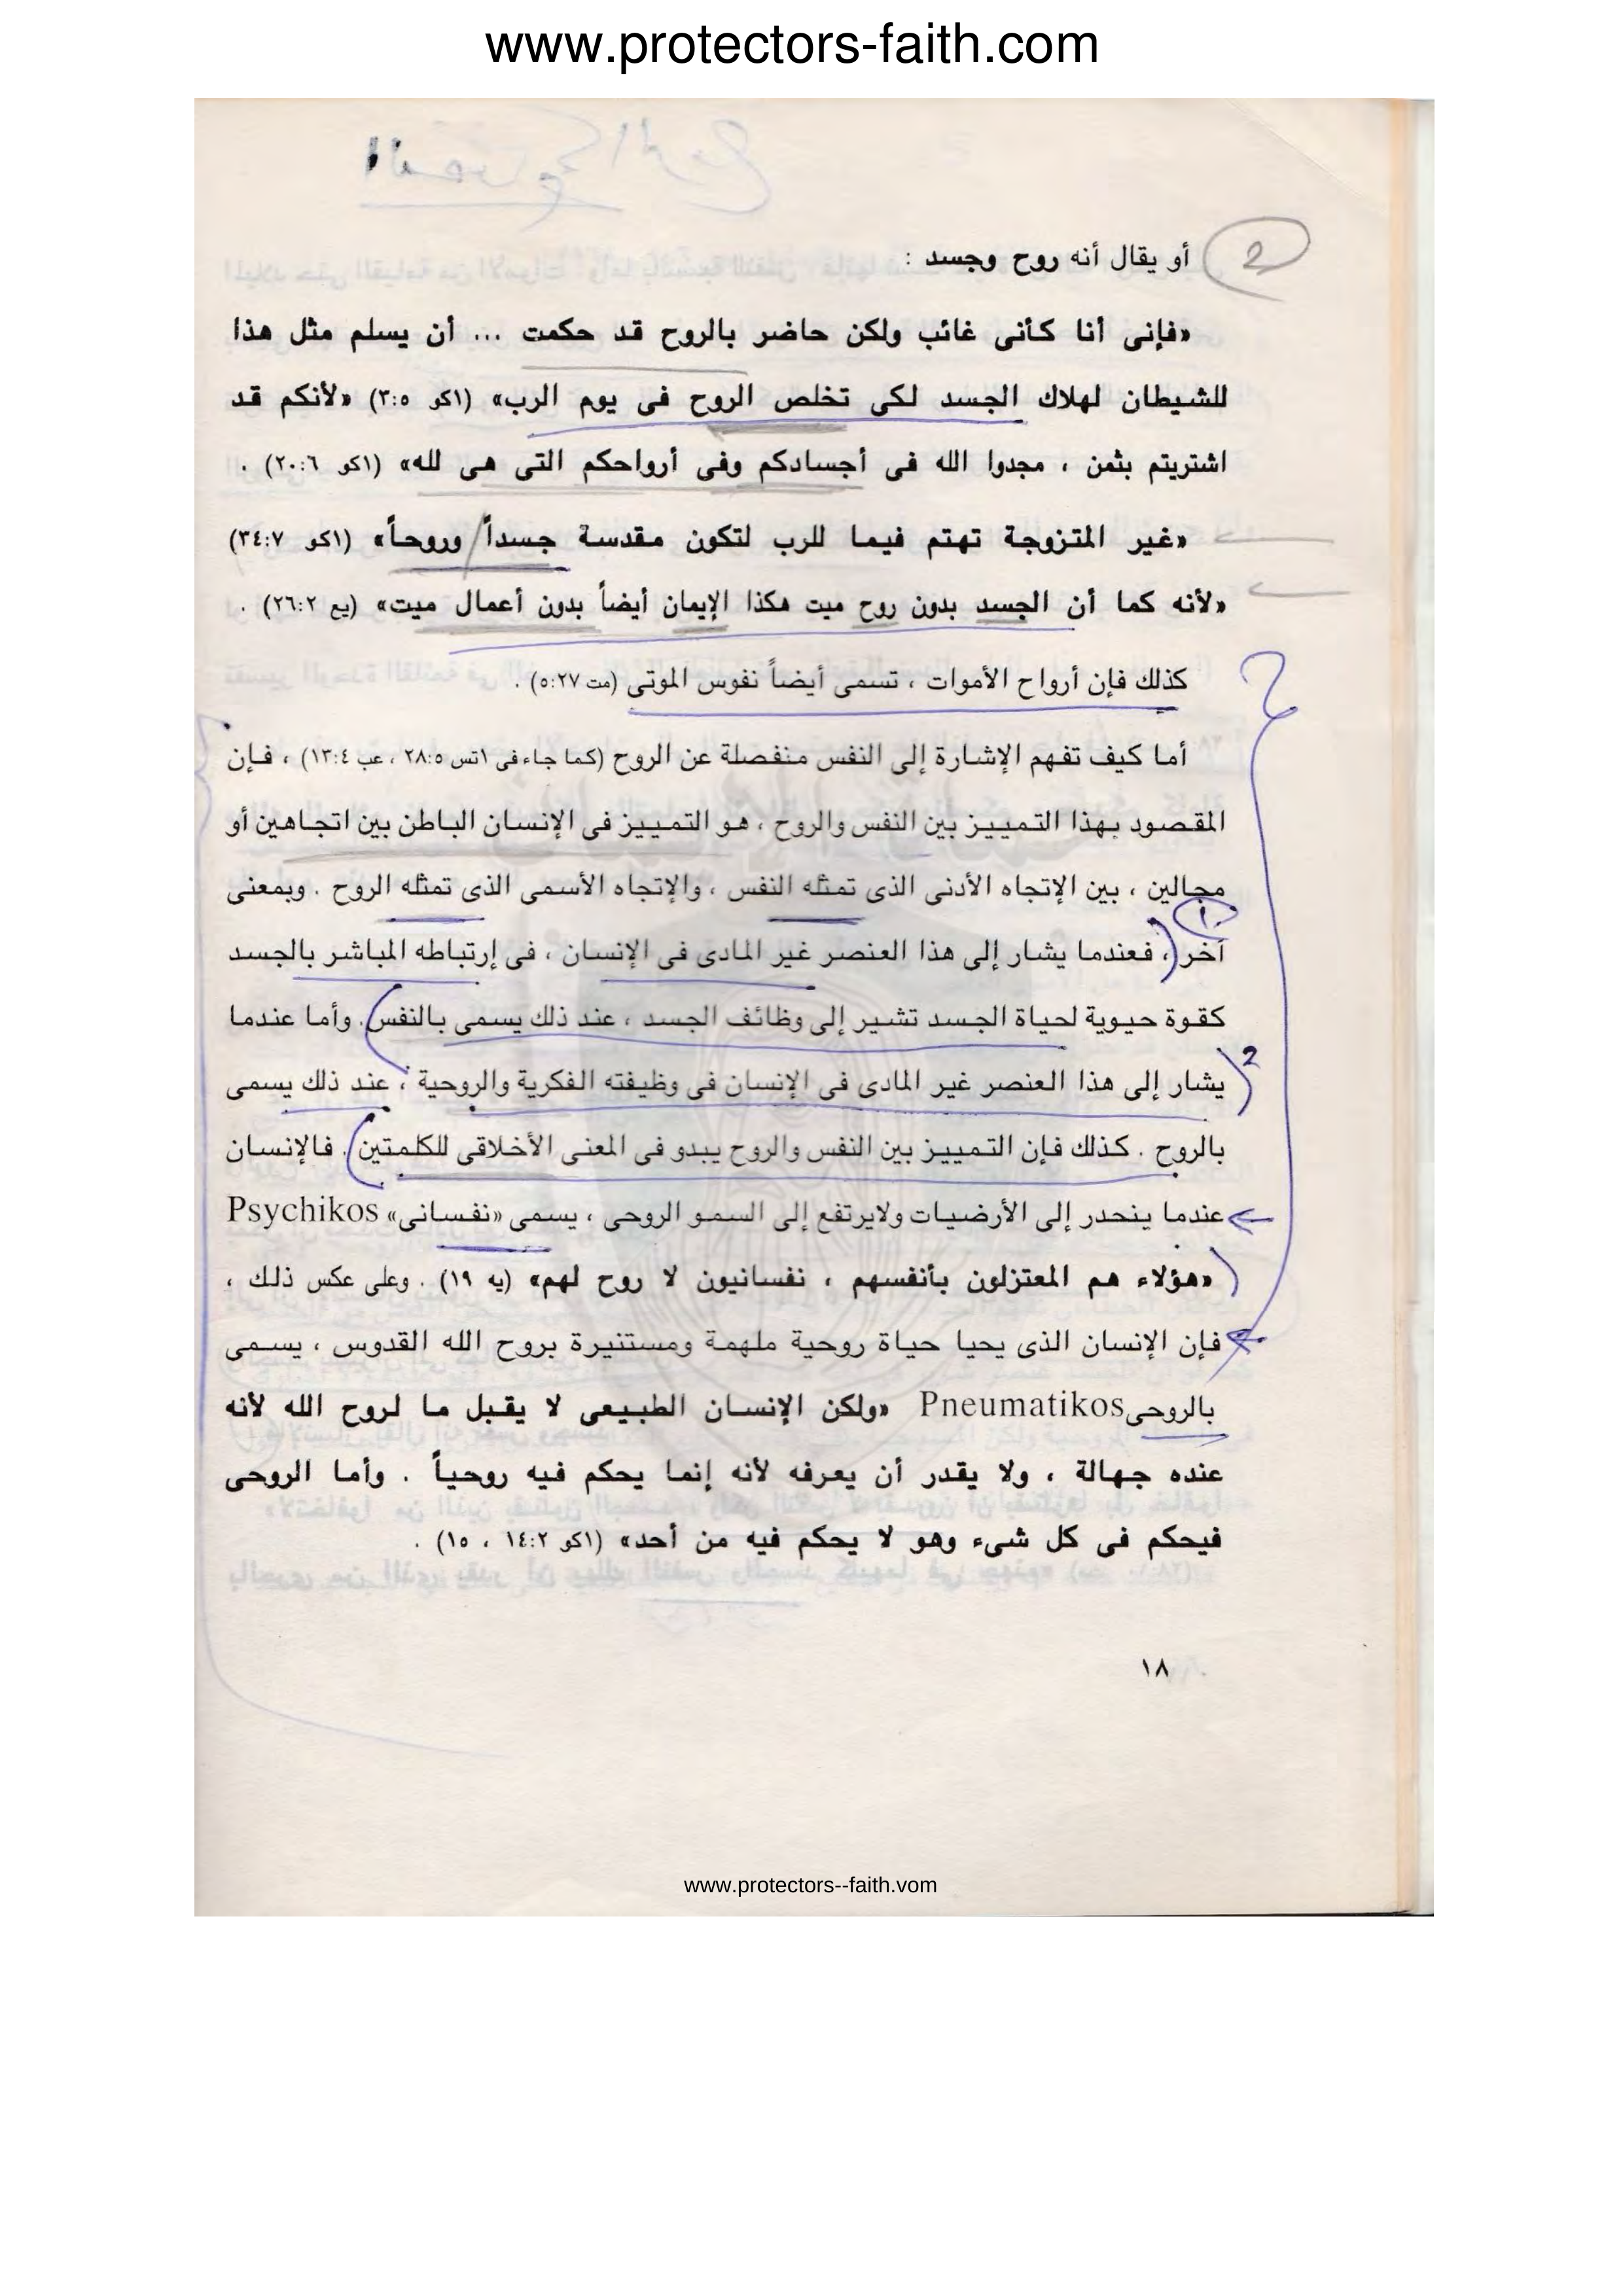 www.protectors-faith.com
2
أو يقال أنه روح وجسد :
«فإنى أنا كأنى غائب ولكن حاضر بالروح قد حكمت ... أن يسلم مثل هذا
للشيطان لهلاك الجسد لكى تخلص الروح فى يوم الرب» (١كو ٣:٥) «لأنكم قد
اشتريتم بثمن ، مجدوا الله فى أجسادكم وفى أرواحكم التى هى لله» (١كو ٢٠:٦) .
«غير المتزوجة تهتم فيما للرب لتكون مقدسة جسداً وروحاً» (١كو ٣٤:٧)
«لأنه كما أن الجسد بدون روح ميت هكذا الإيمان أيضاً بدون أعمال ميت» (يع ٢٦:٢) .
كذلك فإن أرواح الأموات ، تسمى أيضاً نفوس الموتى (مت ٥:٢٧) .
أما كيف تفهم الإشارة إلى النفس منفصلة عن الروح (كما جاء فى ١تس ٢٨:٥ ، عب ١٣:٤) ، فإن
المقصود بهذا التمييز بين النفس والروح ، هو التمييز فى الإنسان الباطن بين اتجاهين أو
مجالين ، بين الإتجاه الأدنى الذى تمثله النفس ، والإتجاه الأسمى الذى تمثله الروح . وبمعنى
١
آخر ، فعندما يشار إلى هذا العنصر غير المادى فى الإنسان ، فى إرتباطه المباشر بالجسد
كقوة حيوية لحياة الجسد تشير إلى وظائف الجسد ، عند ذلك يسمى بالنفس . وأما عندما
2
يشار إلى هذا العنصر غير المادى فى الإنسان فى وظيفته الفكرية والروحية ، عند ذلك يسمى
بالروح . كذلك فإن التمييز بين النفس والروح يبدو فى المعنى الأخلاقى للكلمتين . فالإنسان
عندما ينحدر إلى الأرضيات ولايرتفع إلى السمو الروحى ، يسمى «نفسانى» Psychikos
«هؤلاء هم المعتزلون بأنفسهم ، نفسانيون لا روح لهم» (يه ١٩) . وعلى عكس ذلك ،
فإن الإنسان الذى يحيا حياة روحية ملهمة ومستنيرة بروح الله القدوس ، يسمى
بالروحى Pneumatikos «ولكن الإنسان الطبيعى لا يقبل ما لروح الله لأنه
عنده جهالة ، ولا يقدر أن يعرفه لأنه إنما يحكم فيه روحياً . وأما الروحى
فيحكم فى كل شىء وهو لا يحكم فيه من أحد» (١كو ١٤:٢ ، ١٥) .
١٨
www.protectors--faith.vom